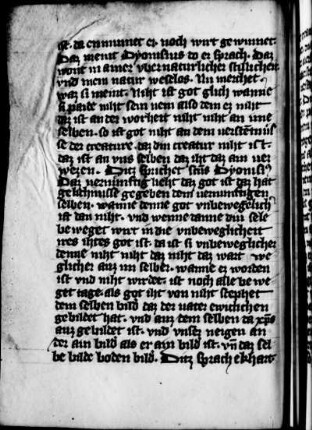 ist. da enmuuet er. noch wirt gewunnet.
Daz meint Dyonisius do er sprach. Daz
wont in ainer vbernaturlicher
vnd mein natur weselos. Nu merchet
waz si meint. Niht ist got glich wanne
si paide niht sein nem also dem er niht
daz ist an der worheit niht niht an ime
selben. so ist got niht an dem
se der creature. daz din creatur niht ist.
daz ist an vns selben daz iht daz am ver
wezen. Ditz sprichet scns Dyonisius
Daz vernunftig lieht daz got ist daz hat
gelichnisse gegeben dem vernunftigen
selben. wanne denne got vnbeweglich
ist dan niht. vnd wenne danne din sele
beweget wirt in die vnbeweglicheit
wes ihtes got ist. da ist si vnbeweglicher
denne niht niht daz niht daz wart we
glicher auz im selber. wanne er worden
ist vnd niht wirdet. ist noch alle bewe
get tage. als got iht von niht schephet
dem selben bild daz der vater ewichchen
gebildet hat. vnd auz dem selben da xps
auz gebildet ist. vnd vnser neigen an
der ain bild als er ain bild ist. vn daz sel
be bilde boden bild. Ditz sprach ekhart